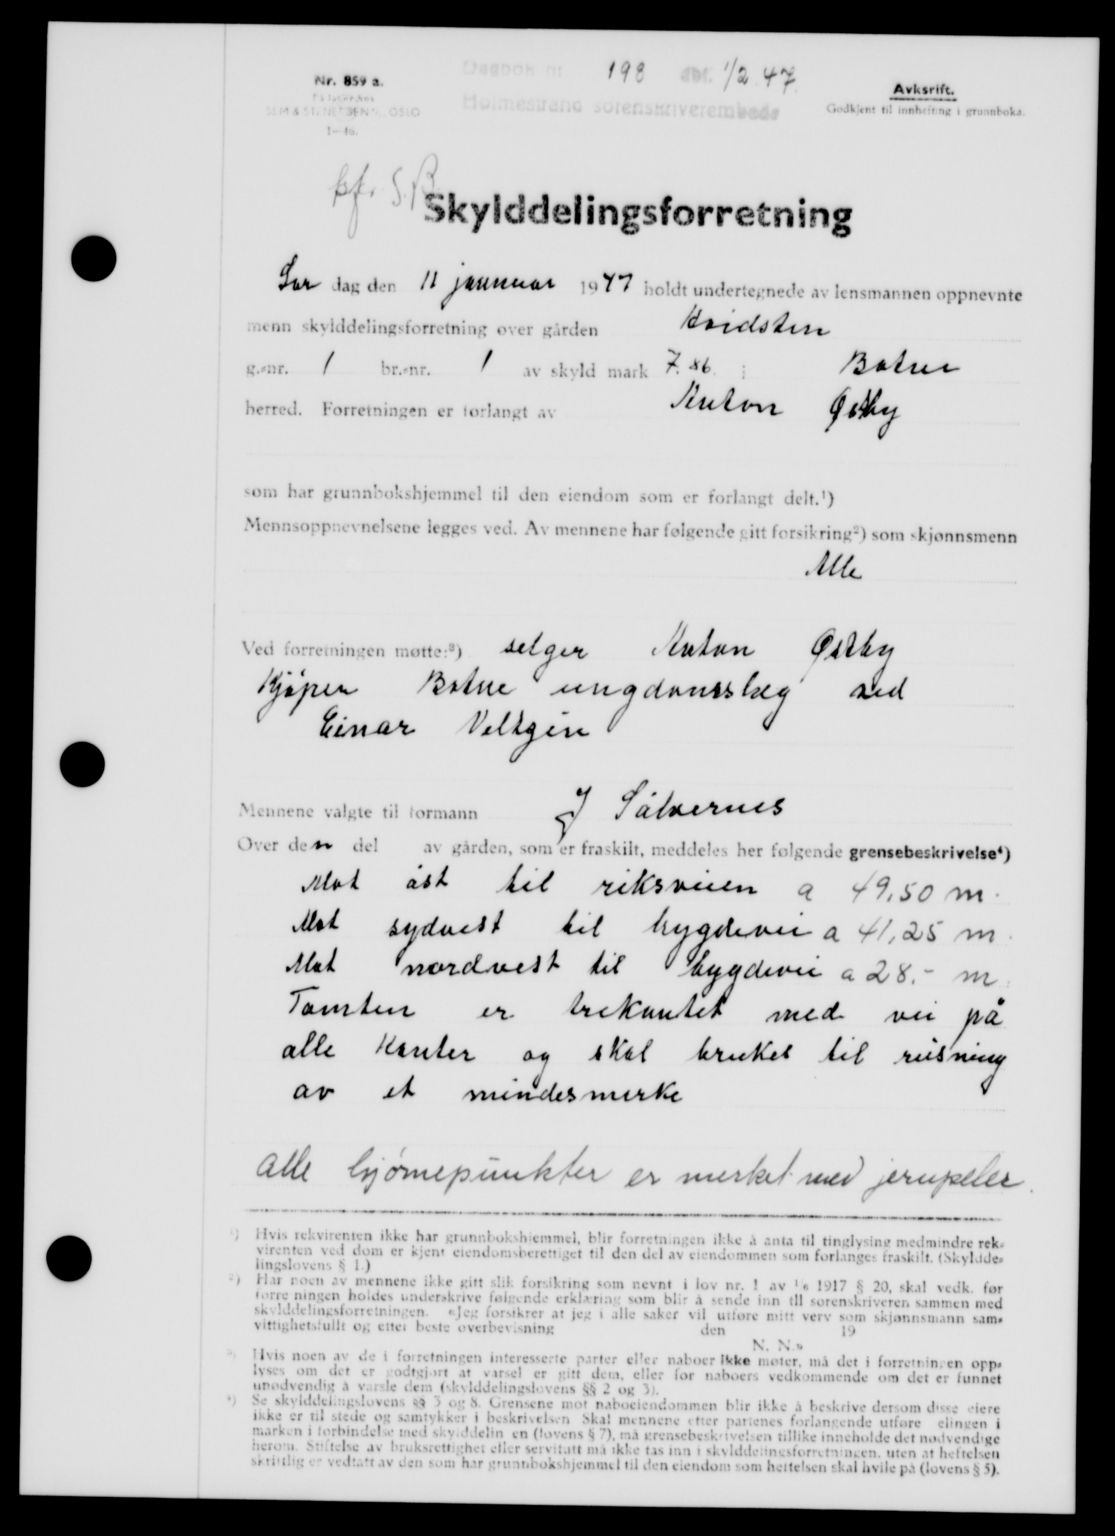 Nr. 859 a.
SEM & STENERSEN A/S, OSLO
1—46.
Dagbok nr 198 dbf. 1/2 47.
Holmestrand sorenskriverembede
Avskrift.
Godkjent til innhefting i grunnboka.
S.B.
Skylddelingsforretning
Lør dag den 11 januar 1947 holdt undertegnede av lensmannen oppnevnte
menn skylddelingsforretning over gården Hvidsten
g.-nr. 1 br.-nr. 1 av skyld mark 7.86 i Botne
herred. Forretningen er forlangt av Anton Østby
som har grunnbokshjemmel til den eiendom som er forlangt delt.¹)
Mennsoppnevnelsene legges ved. Av mennene har følgende gitt forsikring²) som skjønnsmenn
Alle
Ved forretningen møtte:³) selger Anton Østby
Kjøper Botne ungdomslag ved
Einar
Mennene valgte til formann J Sålvernes
Over den del av gården, som er fraskilt, meddeles her følgende grensebeskrivelse⁴)
Mot øst til riksveien a 49,50 m.
Mot sydvest til bygdevei a 41,25 m.
Mot nordvest til bygdevei a 28,- m.
Tomten er trekantet med vei på
alle kanter og skal brukes til reisning
av et mindesmerke
Alle hjørnepunkter er merket med jernpeler.
¹) Hvis rekvirenten ikke har grunnbokshjemmel, blir forretningen ikke å anta til tinglysing medmindre rek-
virenten ved dom er kjent eiendomsberettiget til den del av eiendommen som forlanges fraskilt. (Skyldde-
lingslovens § 1.)
²) Har noen av mennene ikke gitt slik forsikring som nevnt i lov nr. 1 av 1/6 1917 § 20, skal vedk. før
forretningen holdes underskrive følgende erklæring som blir å sende inn til sorenskriveren sammen med
skylddelingsforretningen. «Jeg forsikrer at jeg i alle saker vil utføre mitt verv som skjønnsmann sam-
vittighetsfullt og etter beste overbevisning den 19
N. N.»
³) Hvis noen av de i forretningen interesserte parter eller naboer ikke møter, må det i forretningen opp-
lyses om det er godtgjort at varsel er gitt dem, eller for naboers vedkommende om det er funnet
unødvendig å varsle dem (skylddelingslovens §§ 2 og 3).
⁴) Se skylddelingslovens §§ 3 og 8. Grensene mot naboeiendommen blir ikke å beskrive dersom disse eiere
ikke er til stede og samtykker i beskrivelsen Skal mennene etter partenes forlangende utføre delingen i
marken i forbindelse med skylddelingen (lovens § 7), må grensebeskrivelsen tillike inneholde det nødvendige
herom. Stiftelse av bruksrettighet eller servitutt må ikke tas inn i skylddelingsforretningen, uten at heftelsen
skriftlig er vedtatt av den som har grunnbokshjemmel til den eiendom som heftelsen skal hvile på (lovens § 5).